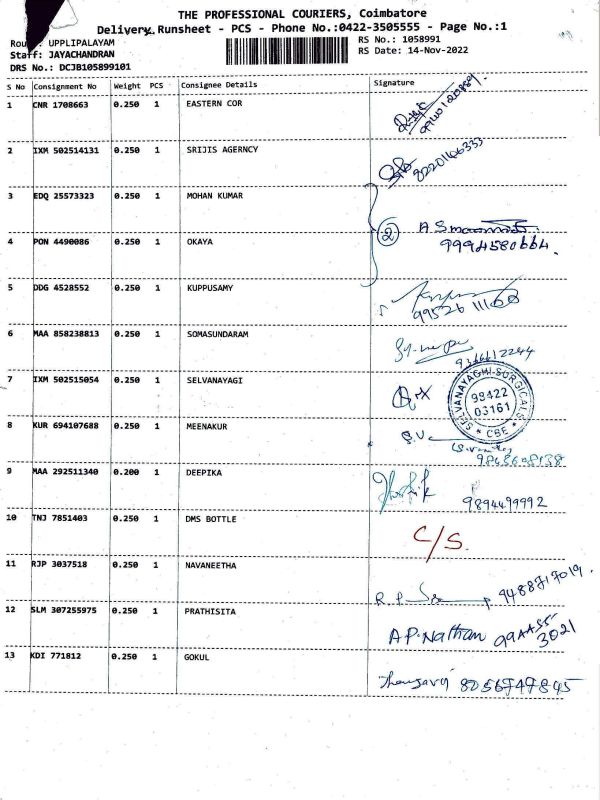 THE PROFESSIONAL COURIERS, Coimbatore
Delivery Runsheet - PCS - Phone No.:0422-3505555 - Page No.:1
UPPLIPALAYAM
RS No.: 1058991
Staff: JAYACHANDRAN
RS Date: 14-Nov-2022
DRS No.: DCJB105899101
S No Consignment No Weight PCS Consignee Details Signature
1 CNR 1708663 0.250 1 EASTERN COR
2 IXM 502514131 0.250 1 SRIJIS AGERNCY
8220146333
3 EDQ 25573323 0.250 1 MOHAN KUMAR
2
4 PON 4490086 0.250 1 OKAYA
9994580664.
5 DDG 4528552 0.250 1 KUPPUSAMY
6 MAA 858238813 0.250 1 SOMASUNDARAM
9366612244
7 IXM 502515054 0.250 1 SELVANAYAGI
SELVANAYAGHI SURGICALS
98422
03161
* CBE *
8 KUR 694107688 0.250 1 MEENAKUR
S.V
9 MAA 292511340 0.200 1 DEEPIKA
9894499992
10 TNJ 7851403 0.250 1 DMS BOTTLE
C/S.
11 RJP 3037518 0.250 1 NAVANEETHA
9488717019.
12 SLM 307255975 0.250 1 PRATHISITA
A P. Natham
13 KDI 771812 0.250 1 GOKUL
8056747845